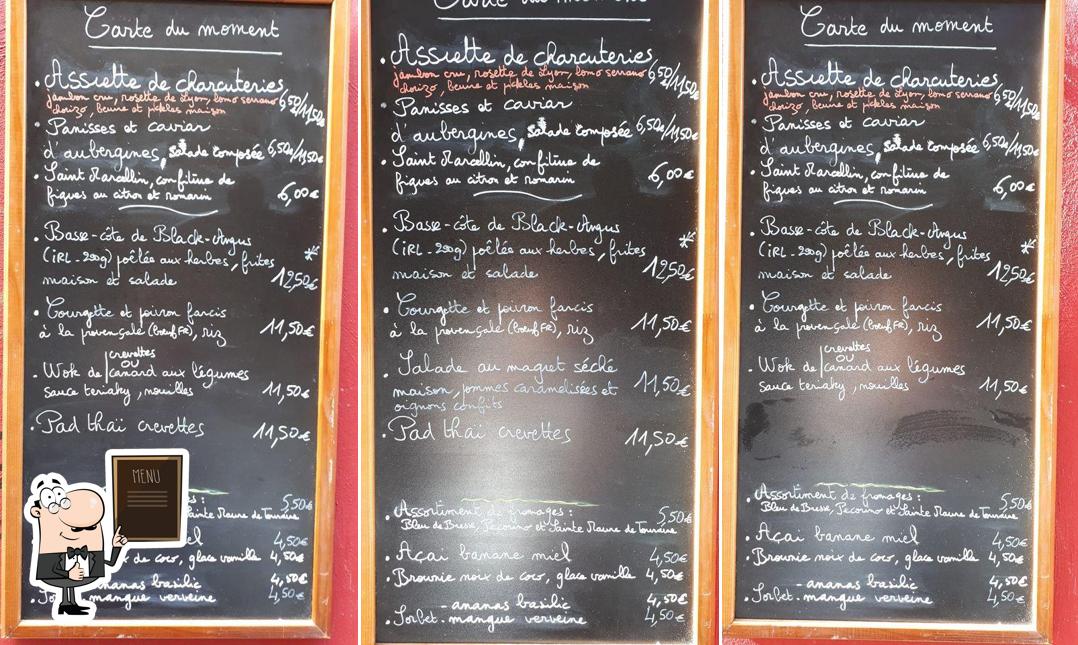 Carte du moment
. Assiette de charcuteries
jambon cru, rosette de Lyon, lomo serrano 6,50/11,50€
chorizo, beurre et pickles maison
. Panisses et caviar
d'aubergines, salade composée 6,50€/11,50€
. Saint Marcellin, confiture de
figues au citron et romarin 6,00€
. Basse-côte de Black-Angus
(IRL - 200g) poêlés aux herbes, frites *
maison et salade 12,50€
. Courgette et poivron farcis
à la provençale (bœuf FR), riz 11,50€
crevettes
OU
. Wok de canard aux légumes
sauce teriaky, nouilles 11,50€
. Pad thaï crevettes 11,50€
MENU
s: 5,50€
Sainte Maure de Touraine
el 4,50€
de coco, glace vanille 4,50€
ananas basilic 4,50€
. So mangue verveine 4,50€
Carte du moment
. Assiette de charcuteries
jambon cru, rosette de Lyon, lomo serrano 6,50/11,50€
chorizo, beurre et pickles maison
. Panisses et caviar
d'aubergines, salade composée 6,50€/11,50€
. Saint Marcellin, confiture de
figues au citron et romarin 6,00€
. Basse-côte de Black-Angus
(IRL - 200g) poêlés aux herbes, frites *
maison et salade 12,50€
. Courgette et poivron farcis
à la provençale (bœuf FR), riz 11,50€
. Salade au magret séché
maison, pommes caramélisées et 11,50€
oignons confits
. Pad thaï crevettes 11,50€
. Assortiment de fromages : 5,50€
Bleu de Bresse, Pecorino et Sainte Maure de Touraine
. Açai banane miel 4,50€
. Brownie noix de coco, glace vanille 4,50€
- ananas basilic 4,50€
. Sorbet - mangue verveine 4,50€
Carte du moment
. Assiette de charcuteries
jambon cru, rosette de Lyon, lomo serrano 6,50/11,50€
chorizo, beurre et pickles maison
. Panisses et caviar
d'aubergines, salade composée 6,50€/11,50€
. Saint Marcellin, confiture de
figues au citron et romarin 6,00€
. Basse-côte de Black-Angus
(IRL - 200g) poêlés aux herbes, frites *
maison et salade 12,50€
. Courgette et poivron farcis
à la provençale (bœuf FR), riz 11,50€
crevettes
OU
. Wok de canard aux légumes
sauce teriaky, nouilles 11,50€
. Assortiment de fromages : 5,50€
Bleu de Bresse, Pecorino et Sainte Maure de Touraine
. Açai banane miel 4,50€
. Brownie noix de coco, glace vanille 4,50€
- ananas basilic 4,50€
. Sorbet - mangue verveine 4,50€